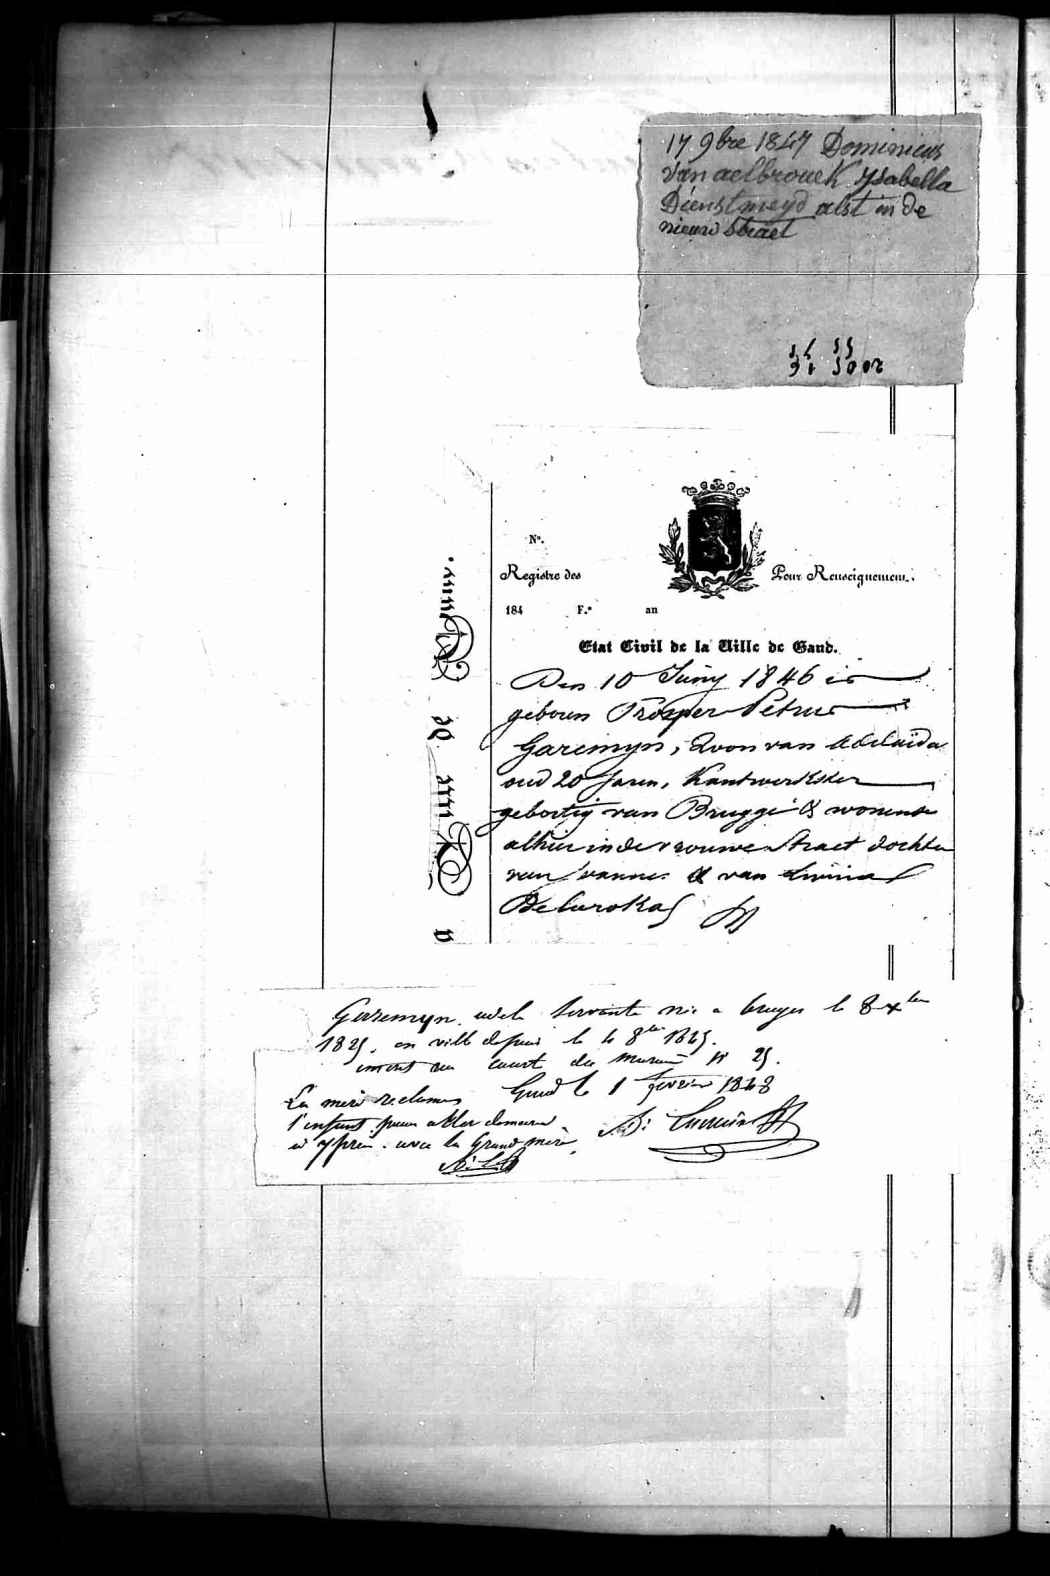 17 9bre 1847 Dominicus
van aelbrouck ysabella
Dienstmeyd alst in de
nieuw straet
N°.
Registre des Pour Renseignement.
184 F.° an
Etat Civil de la Ville de Gand.
Den 10 Juny 1846 is
geboren Prosper Petrus
Garemyn, Zoon van Adelaïda
oud 20 Jaren, Kantwerkster
geboortig van Brugge & wonende
alhier in de vrouwe Straet dochter
van & van
Garemyn servante née a bruges le 8 xbre
1825. en ville depuis le 4 8bre 1845.
court du N° 25.
Gand le 1 fevrier 1848
La mère reclame
l'enfant pour aller demeurer
a ypres. avec la Grand mère.